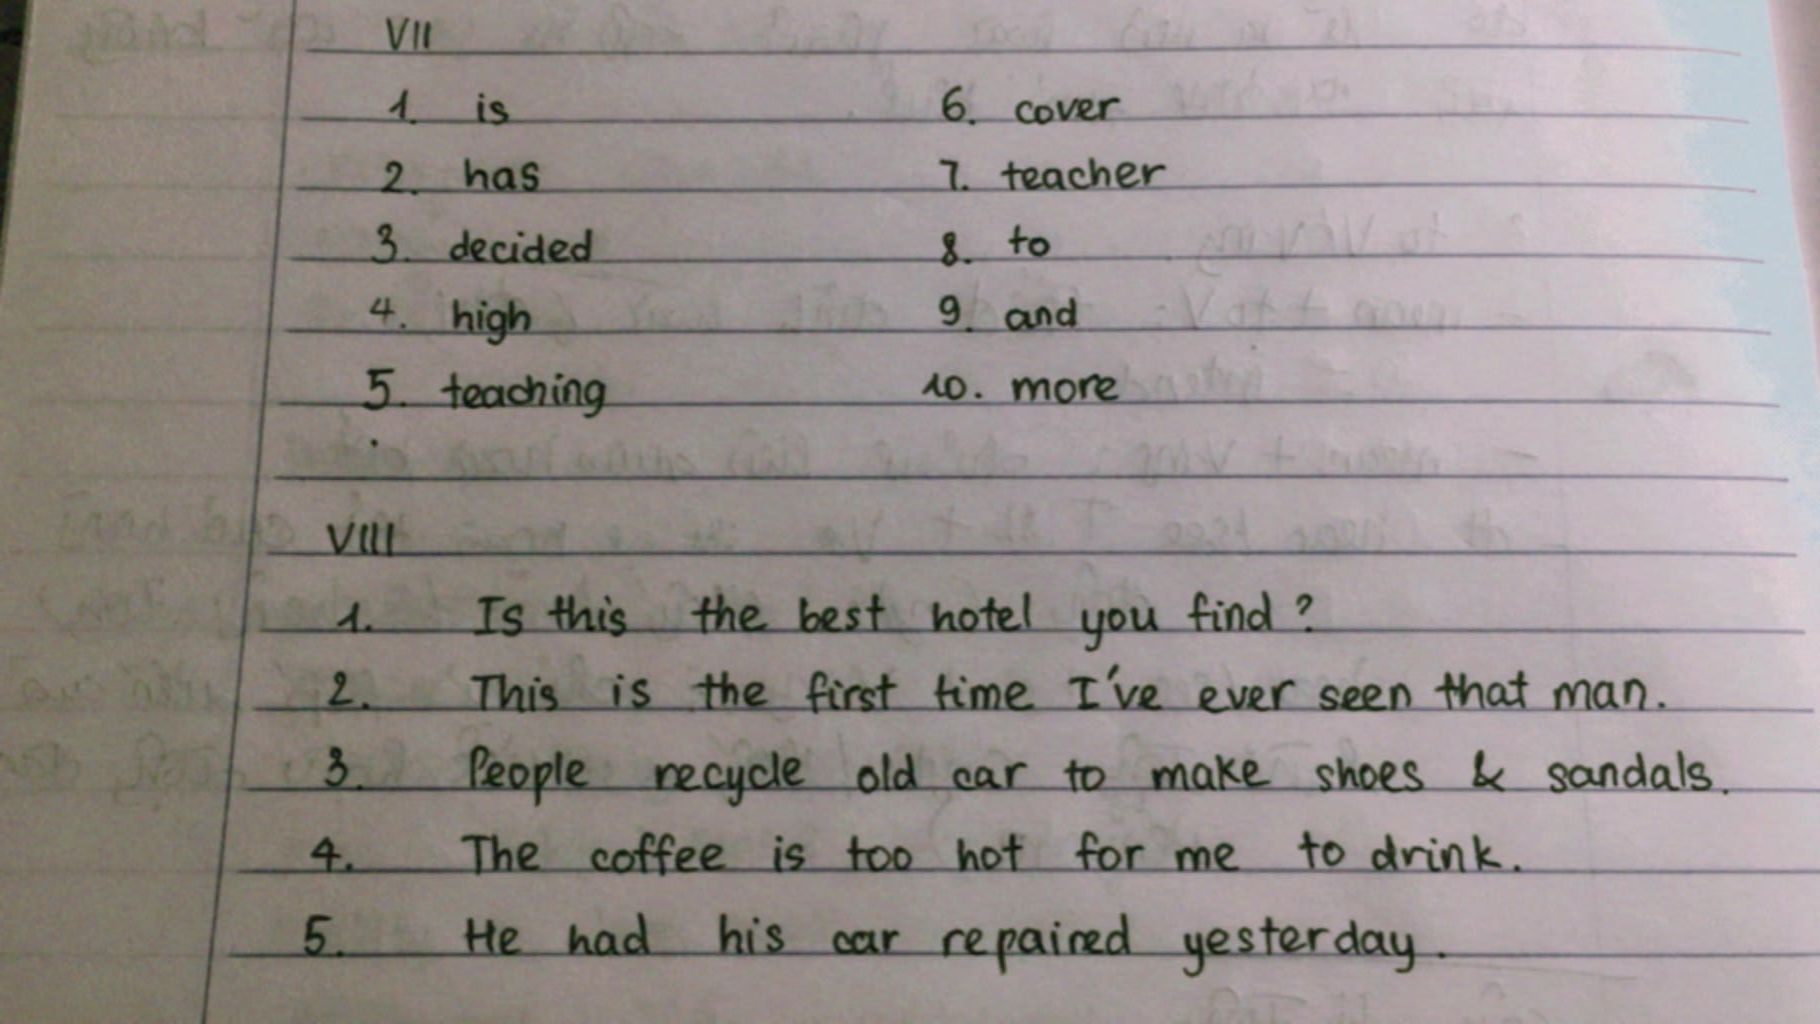 VII
1. is
2. has
3. decided
4. high
5. teaching
6. cover
7. teacher
8. to
9. and
10. more
VIII
1. Is this the best hotel you find?
2. This is the first time I've ever seen that man.
3. People recycle old car to make shoes & sandals.
4. The coffee is too hot for me to drink.
5. He had his car repaired yesterday.